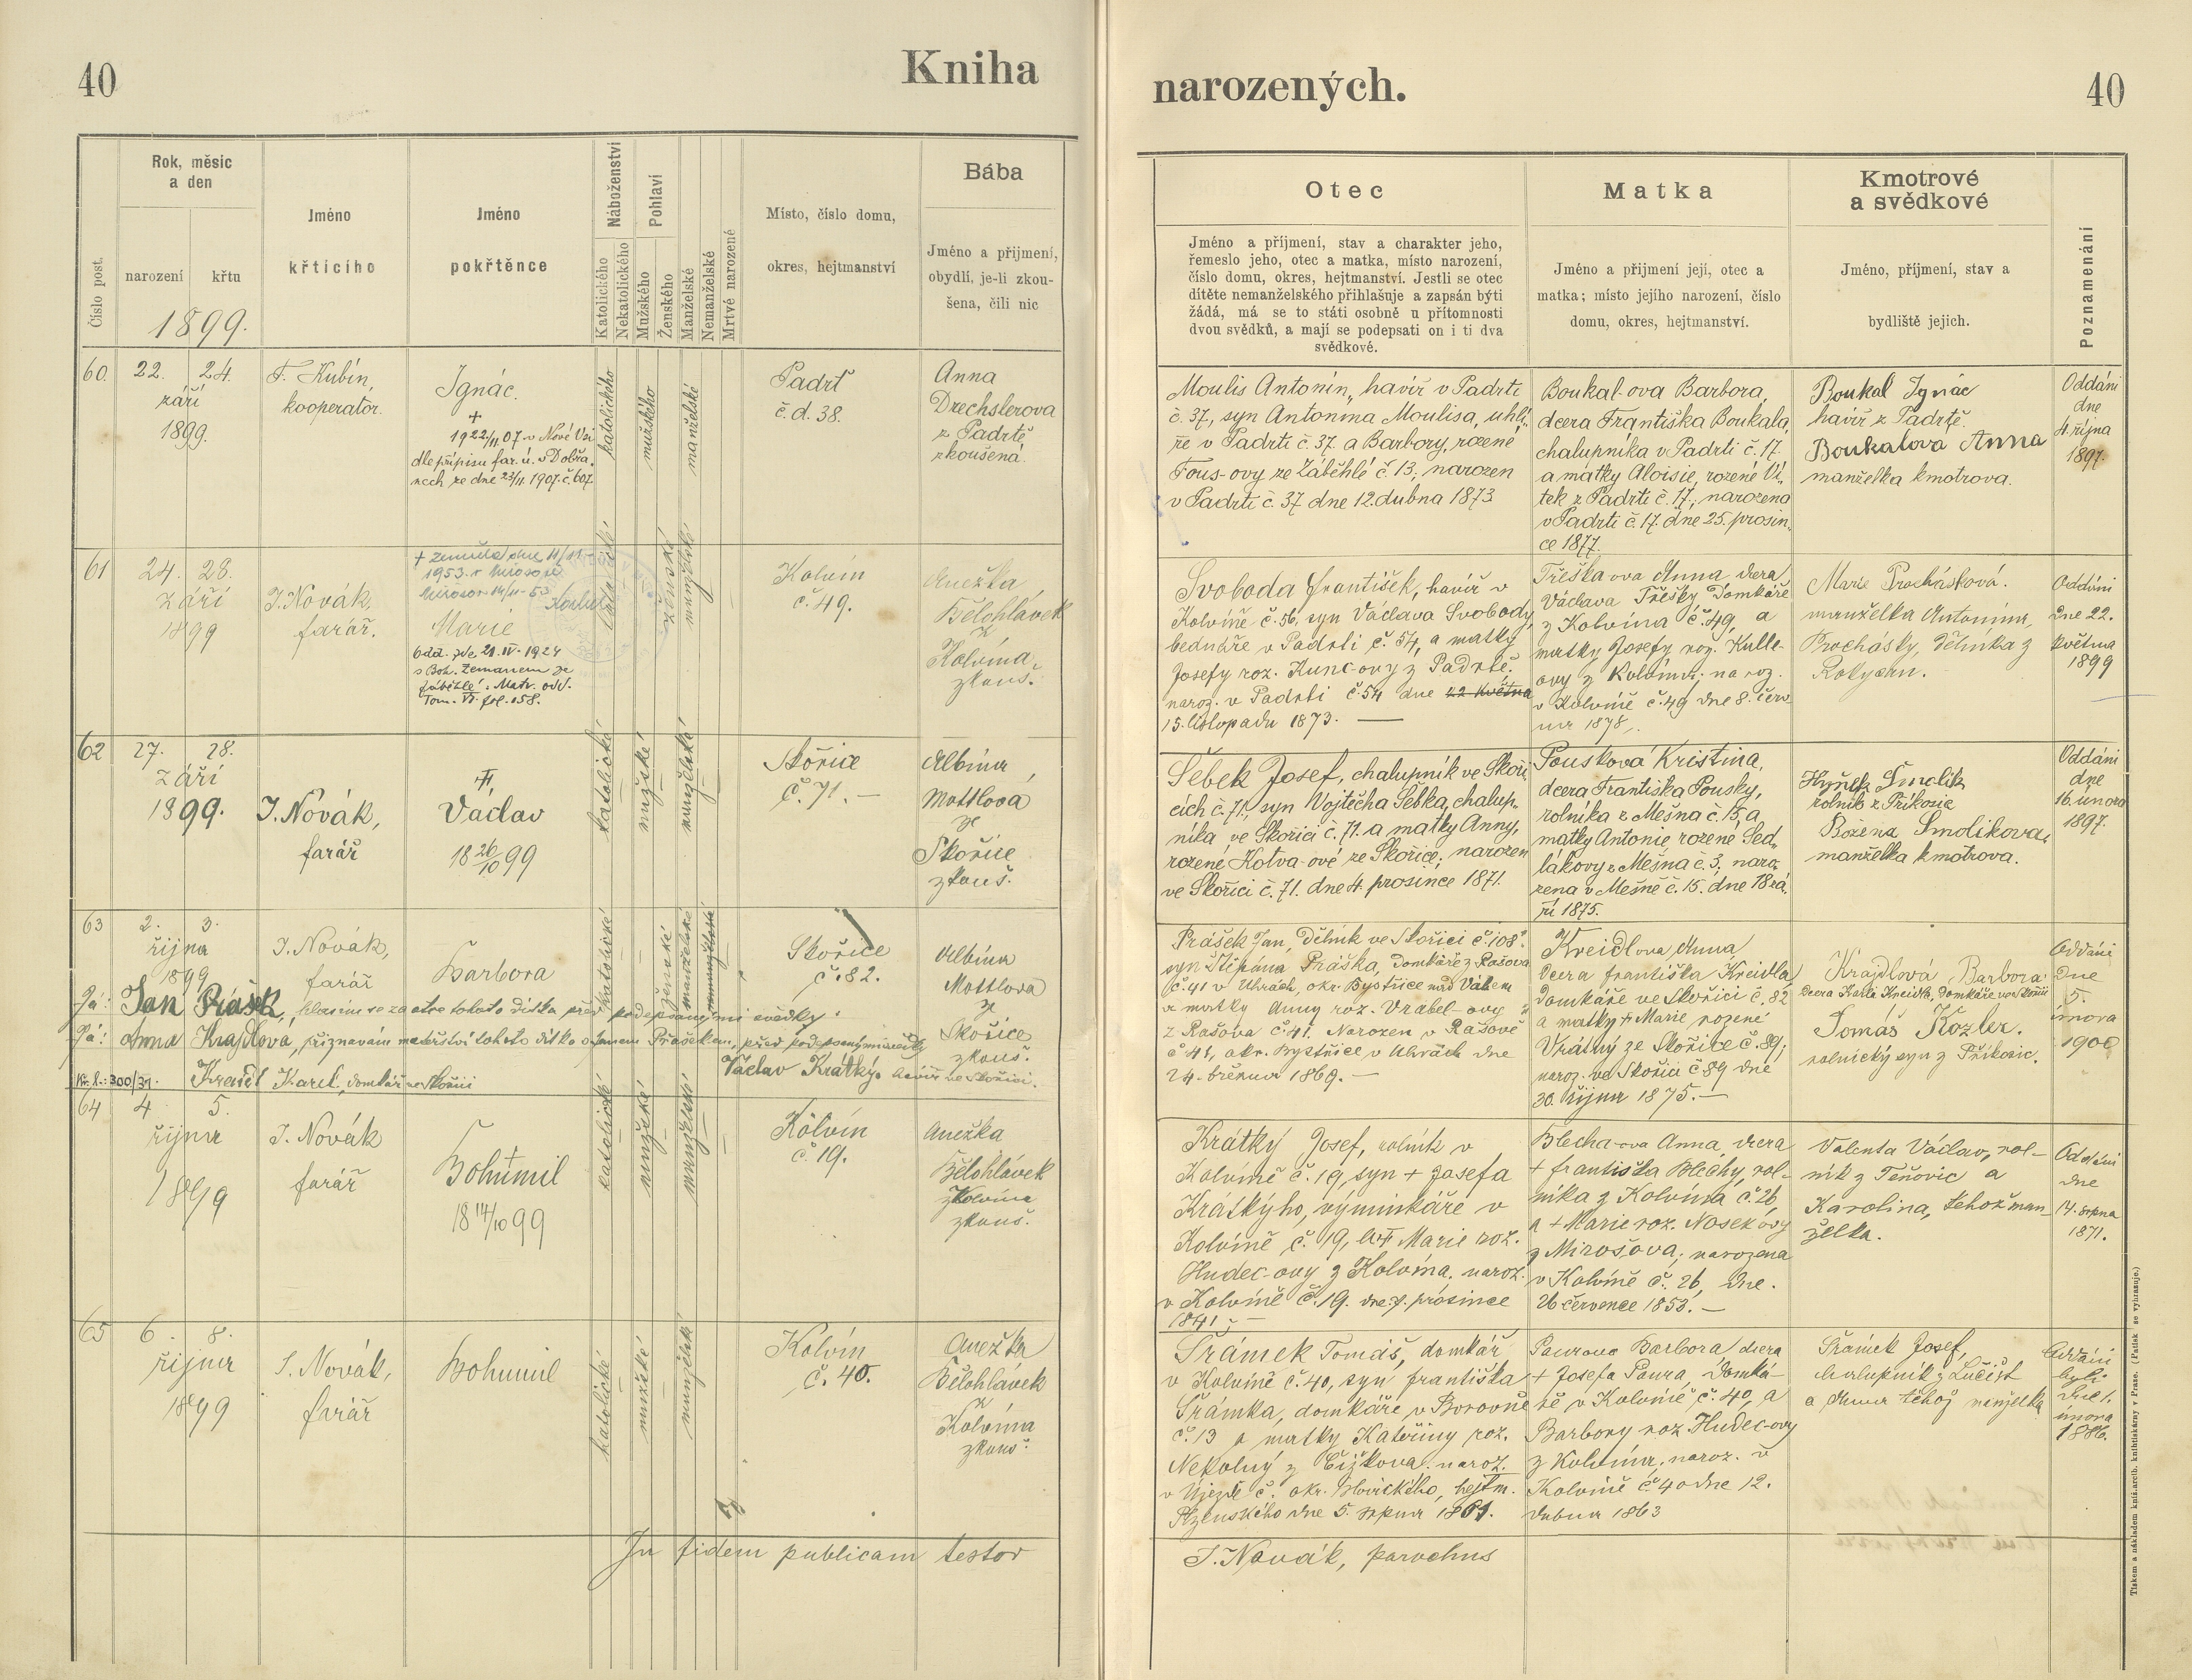 40
Kniha
narozených.
40
Číslo post.
Rok, měsíc
a den
narození
křtu
1899.
Jméno
křtícího
Jméno
pokřtěnce
Náboženství
Katolického
Nekatolického
Pohlaví
Mužského
Ženského
Manželské
Nemanželské
Mrtvě narozené
Místo, číslo domu,
okres, hejtmanství
Bába
Jméno a příjmení,
obydlí, je-li zkou-
šena, čili nic
Otec
Jméno a příjmení, stav a charakter jeho,
řemeslo jeho, otec a matka, místo narození,
číslo domu, okres, hejtmanství. Jestli se otec
dítěte nemanželského přihlašuje a zapsán býti
žádá, má se to státi osobně u přítomnosti
dvou svědků, a mají se podepsati on i ti dva
svědkové.
Matka
Jméno a příjmení její, otec a
matka; místo jejího narození, číslo
domu, okres, hejtmanství.
Kmotrové
a svědkové
Jméno, příjmení, stav a
bydliště jejich.
Poznamenání
60.
22. 24.
září
1899.
F. Kubín,
kooperator.
Ignác.
+
1922/II 07 v Nové Vsi
dle přípisu far. ú. v Dobřa-
nech ze dne 23/II. 1907. č. 607.
katolického
mužského
manželské
Padrť
č. d. 38.
Anna
Drechslerova
z Padrtě
zkoušená.
Moulis Antonín, havíř v Padrti
č. 37, syn Antonína Moulisa, uhlí-
ře v Padrti č. 37. a Barbory, rozené
Fous-ovy ze Záběhlé č. 13, narozen
v Padrti č. 37 dne 12. dubna 1873
Boukal-ova Barbora,
dcera Františka Boukala,
chalupníka v Padrti č. 17.
a matky Aloisie, rozené Ví-
tek z Padrti č. 17., narozena
v Padrti č. 17. dne 25. prosin-
ce 1877.
Boukal Ignác
havíř z Padrtě.
Boukalova Anna
manželka kmotrova.
Oddáni
dne
4. října
1897.
61
24. 28.
září
1899
J. Novák,
farář.
+ zemřela dne 11/11
1953. v Mirošově
Marie
Odd. zde 21. IV. 1924
s Boh. Zemanem ze
Záběhlé: Matr. odd.
Tom. VI. fol. 158.
katolické
ženské
manželské
Kolvín
č. 49.
Anežka
Bělohlávek
z
Kolvína,
zkouš.
Svoboda František, havíř v
Kolvíně č. 56, syn Václava Svobody,
bednáře v Padrti č. 54, a matky
Josefy roz. Kunc-ovy z Padrtě.
naroz. v Padrti č. 54 dne 22 května
15. listopadu 1873. —
Třeška ova Anna dcera
Václava Třešky domkáře
z Kolvína č. 49, a
matky Josefy roz. Kulle-
ovy z Kolvína; naroz.
v Kolvíně č. 49 dne 8. červ-
na 1878.
Marie Procházková.
manželka Antonína
Procházky, dělníka z
Rokycan.
Oddáni
dne 22.
května
1899
62
27. 28.
září
1899.
J. Novák,
farář
Václav
18 26/10 99
katolické
mužské
manželské
Skořice
č. 71. —
Albína
Mottlova
ze
Skořice
zkouš.
Šebek Josef, chalupník ve Skoři-
cích č. 71., syn Vojtěcha Šebka, chalup-
níka ve Skořici č. 71. a matky Anny,
rozené Kotva-ové ze Skořice; narozen
ve Skořici č. 71. dne 4. prosince 1871.
Pousková Kristina,
dcera Františka Pousky,
rolníka z Mešna č. 15, a
matky Antonie, rozené Sed-
lákovy z Mešna č. 3, naro-
zena v Mešně č. 15. dne 18 zá-
ří 1875.
Hynek Smolík
rolník z Příkosic
Božena Smolíkova,
manželka kmotrova.
Oddáni
dne
16. února
1897.
63
2. 3.
října
1899
J. Novák,
farář
Barbora
katolické
ženské
manželské
Skořice
č. 82.
Albína
Mottlova
ze
Skořice
zkouš.
Já: Jan Prášek, hlásím se za otce tohoto dítka před podepsanými svědky.
Já: Anna Krajdlova, přiznávám mateřství tohoto dítka s Janem Práškem, před podepsanými svědky
Karel, domkář ve Skořici
Václav Krátký, havíř ve Skořici.
Prášek Jan, dělník ve Skořici č. 108.
syn Štěpána Práška, domkáře z Rašova
č. 41 v Uhrách, okr. Bystřice nad Váhem
a matky Anny roz. Vrabel-ovy
z Rašova č. 41. Narozen v Rašově
č 41, okr. Bystřice v Uhrách dne
24. března 1869. —
Kreidlova Anna,
dcera Františka Kreidla,
domkáře ve Skořici č. 82
a matky + Marie rozené
Vrátný ze Skořice č. 89;
naroz. ve Skořici č 89 dne
30. října 1875. —
Krajdlová Barbora
dcera Karla Kreidla, domkáře ve Skořici
Tomáš Kozler.
rolnický syn z Příkosic.
Oddáni
dne
5.
února
1900
64
4 5.
října
1899
J. Novák
farář
Bohumil
18 14/10 99
katolické
mužské
manželské
Kolvín
č. 19.
Anežka
Bělohlávek
z Kolvína
zkouš.
Krátký Josef, rolník v
Kolvíně č. 19, syn + Josefa
Krátkýho, výminkáře v
Kolvíně č. 19, a + Marie roz.
Hudec-ovy z Kolvína, naroz.
v Kolvíně č. 19. dne 7. prosince
1841; —
Blecha-ova Anna, dcera
+ Františka Blechy, rol-
níka z Kolvína č. 26,
a + Marie roz. Nosek ovy
z Mirošova; narozena
v Kolvíně č. 26, dne.
26 července 1853. —
Valenta Václav, rol-
ník z Těňovic a
Karolina, tehož man-
želka.
Oddáni
dne
14. srpna
1871.
65
6. 8.
října
1899
J. Novák,
farář
Bohumil
katolické
mužské
manželské
Kolvín
č. 40.
Anežka
Bělohlávek
z
Kolvína
zkouš.
Šrámek Tomáš, domkář
v Kolvíně č. 40, syn Františka
Šrámka, domkáře v Borovně
č. 13 a matky Kateřiny roz.
Nekolný z Čížkova. naroz.
v Újezdě č. okr. Blovického, hejtm.
Plzenského dne 5. srpna 1861.
Paurova Barbora dcera
+ Josefa Paura, domká-
ře v Kolvíně č. 40, a
Barbory roz. Hudec-ovy
z Kolvína, naroz. v
Kolvíně č 40 dne 12.
dubna 1863
Šrámek Josef,
chalupník z Lučišť
a Anna téhož manželka
Oddáni
byli
dne 1.
února
1886.
In fidem publicam testor
J. Novák, parochus
Tiskem a nákladem kníž. arcib. knihtiskárny v Praze. (Patisk se vyhrazuje.)